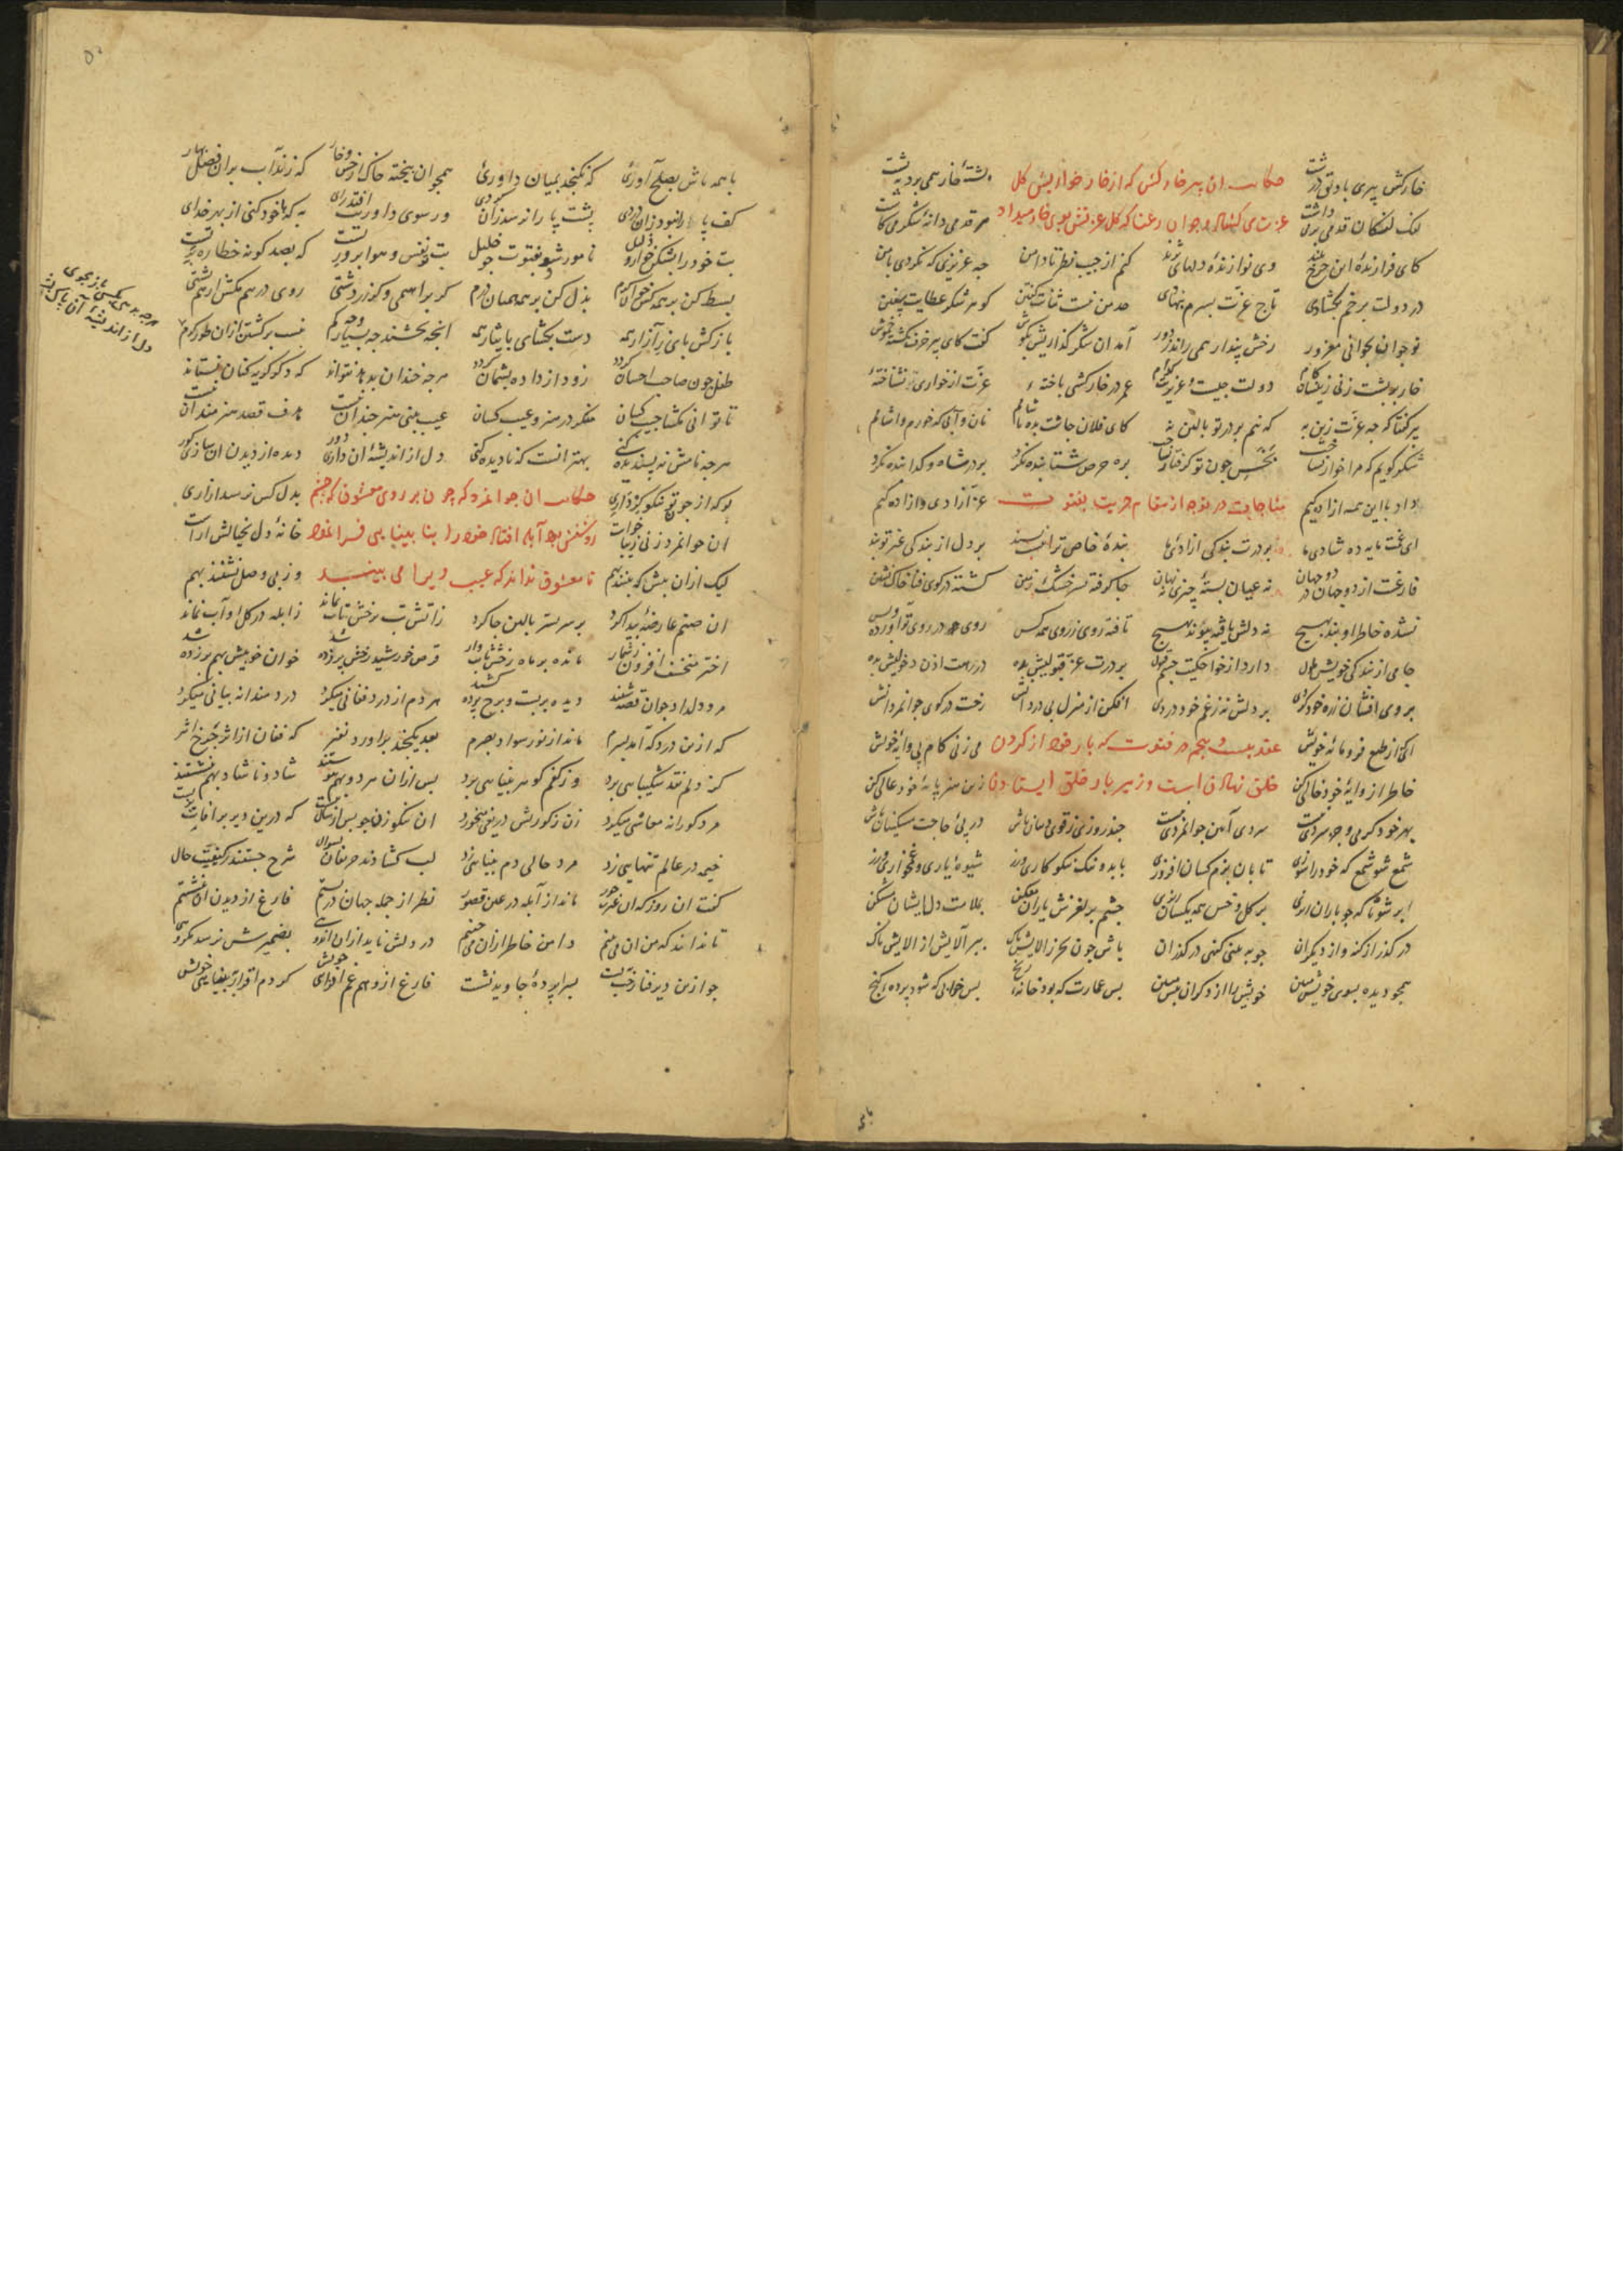 خارکش پیری با دلق درشت پشتهٔ خار همی برد به پشت
حکایت ان پیر خارکش که از خار خواریش کل
لنک لنکان قدمی برمی داشت هر قدم دانهٔ شکری می کاشت
عزت می کشاد و جوان رعنا که کل عزتش بوی خار میداد
کای فرازندهٔ این چرخ بلند وی نوازندهٔ دلهای نژند
کنم از جیب نظر تا دامن چه عزیزی که نکردی با من
در دولت برخم بکشادی تاج عزت بسرم بنهادی
حد من نیست ثنایت کفتن کوهر شکر عطایت سفتن
نوجوانی بجوانی مغرور رخش پندار همی راند ز دور
آمد آن شکر کذاریش بکوش کفت کای پیر خرف کشته خموش
خار بر پشت زنی زینسان کام دولت چیست عزیزیت کدام
عمر در خارکشی باخته عزت از خواری نشناخته
پیر کفتا که چه عزت زین به که نیم بر در تو بالین نه
کای فلان چاشت بده یا شامم نان و آبی که خورم و آشامم
شکر کویم که مرا خوار نساخت بخسی چون تو کرفتار نساخت
بره حرص شتابنده نکرد بر در شاه و کدا بنده نکرد
داد با این همه ازادکیم عز آزادی و ازادکیم
مناجات در توجه از مقام حریت بفتوت
ای غمت مایه ده شادی ما بر درت بندکی ازادی ما
بندهٔ خاص ترا نیست پسند بر دل از بندکی غیر تو بند
فارغست از دو جهان در دو جهان نه عیان بستهٔ چیزی نه نهان
جا کرفته بسر خشک زمین کشته در کوی فنا خاک نشین
نشده خاطر او بند بهیچ نه دلش یافته پیوند بهیچ
تافته روی ز روی همه کس روی در روی تو آورده و بس
جامی از بندکی خویش ملول دارد از خواجکیت چشم قبول
بر درت عز قبولیش بده در رهت اذن دخولیش بده
بر دلش نه ز غم خود دردی افکن از منزل بی دردانش
رخت در کوی جوانمردانش
عقد بیست و پنجم در فتوت که بار خود از کردن
ای از طبع فرومایهٔ خویش می زنی کام پی وایهٔ خویش
خلق نهادن است و زیر بار خلق ایستادن
خاطر از وایهٔ خود خالی کن زین هنر پایهٔ خود عالی کن
بهر خود کرمی و جز سردی نیست سردی آیین جوانمردی نیست
چند روزی ز قوی دینان باش در پی حاجت مسکینان باش
شمع شو شمع که خود را سوزی تا بان بزم کسان افروزی
با بد و نیک نکوکاری ورز شیوهٔ یاری و غمخواری ورز
ابر شو تا که چو باران ریزی بر کل و خس همه یکسان ریزی
چشم بر لغزش یاران مفکن بملامت دل ایشان مشکن
در کذر از کنه و از دیکران چون به بینی کنهی در کذران
باش چون بحر ز الایش پاک ببر آلایش از الایش ناک
همچو دیده بسوی خویش مبین خویش را از دکران پیش مبین
بس عمارت که بود خانهٔ رنج بس خرابی که شود پردهٔ کنج
با
با همه باش بصلح آوری که نکنجد بمیان داوری
همچو ان بیخته خاک از خس و خار که زند آب بران فضل بهار
کف پا را نبود زان دردی پشت پا را نرسد زان کردی
ور سوی داوریت افتد رای به که با خود کنی از بهر خدای
بت خود را بشکن خوار و ذلیل نامور شو بفتوت چو خلیل
بت تو نفس هواپرور تست که بصد کونه خطا رهبر تست
بسط کن بر همه کس خوان کرم بذل کن بر همه همیان درم
کر براهیمی و کر زردشتی روی در هم مکش از هم پشتی
باز کش پای ز آزار همه دست بکشای بایثار همه
انچه بخشند چه بسیار و چه کم نیست برکشتن ازان طور کرم
طفل چون صاحب احسان کردد زود از داده پشیمان کردد
هر چه خندان بدهد نتواند که دکر کریه کنان نستاند
تا توانی مکشا جیب کسان منکر در هنر و عیب کسان
عیب بینی هنر چندان نیست هدف قصد هنرمندان نیست
هر چه نامش نه پسندیده کنی بهتر انست که نادیده کنی
دل از اندیشهٔ ان داری دور دیده از دیدن ان سازی کور
بو که از چون تو نکو کرداری بدل کس نرسد ازاری
حکایت ان جوانمرد که چون بر روی معشوق که چشم
ان جوانمرد زنی زیبا خواست خانهٔ دل بخیالش اراست
روشنش بود آبله افتاد خود را بنابینایی فرا نمود
لیک ازان پیش که بینند بهم وز پی وصل نشینند بهم
تا معشوق نداند که عیب ویرا می بیند
ان صنم عارضهٔ پیدا کرد بر سر بستر بالین جا کرد
ز آتش تب برخش تاب نماند ز ابله در کل او آب نماند
اختر منخسف افزون ز شمار مانده بر ماه رخش نایب وار
قرص خورشید رخش پرزده شد خوان خوبیش بهم برزده شد
مرد دلداده چو ان قصه شنید دیده بربست و برخ پرده کشید
هر دم از درد فغانی میکرد دردمندانه بیانی میکرد
که ازین درد که آمد بسرم ماند از نور سواد بصرم
بعد یکچند براورد نفیر که فغان از اثر چرخ اثیر
کز دلم نقد شکیبایی برد وز کفم کوهر بینایی برد
پس ازان هر دو بهم پیوستند شاد و ناشاد بهم بنشستند
مرد کورانه معاشی میکرد زن ز کوریش دریغی میخورد
ان نکو زن چو پس از سالی بیست که درین دیر پر افات بزیست
خیمه در عالم تنهایی زد مرد حالی دم بینایی زد
لب کشادند حریفان بسوال شرح جستند ز کیفیت حال
کفت ان روز که ان غیرت حور ماند از آبله در عین قصور
نظر از جمله جهان دربستم فارغ از دیدن ان بنشستم
تا نداند که من ان می بینم دامن خاطر ازان می چینم
در دلش ناید ازان اندوهی بضمیرش نرسد مکروهی
چو ازین دیر فنا رخت ببست بسراپردهٔ جاوید نشست
فارغ از وهم غم افزای خویش کردم اقرار به بینایی خویش
هر چه بد بینی کسی باز مجوی
دل از اندیشهٔ آن پاک بشوی